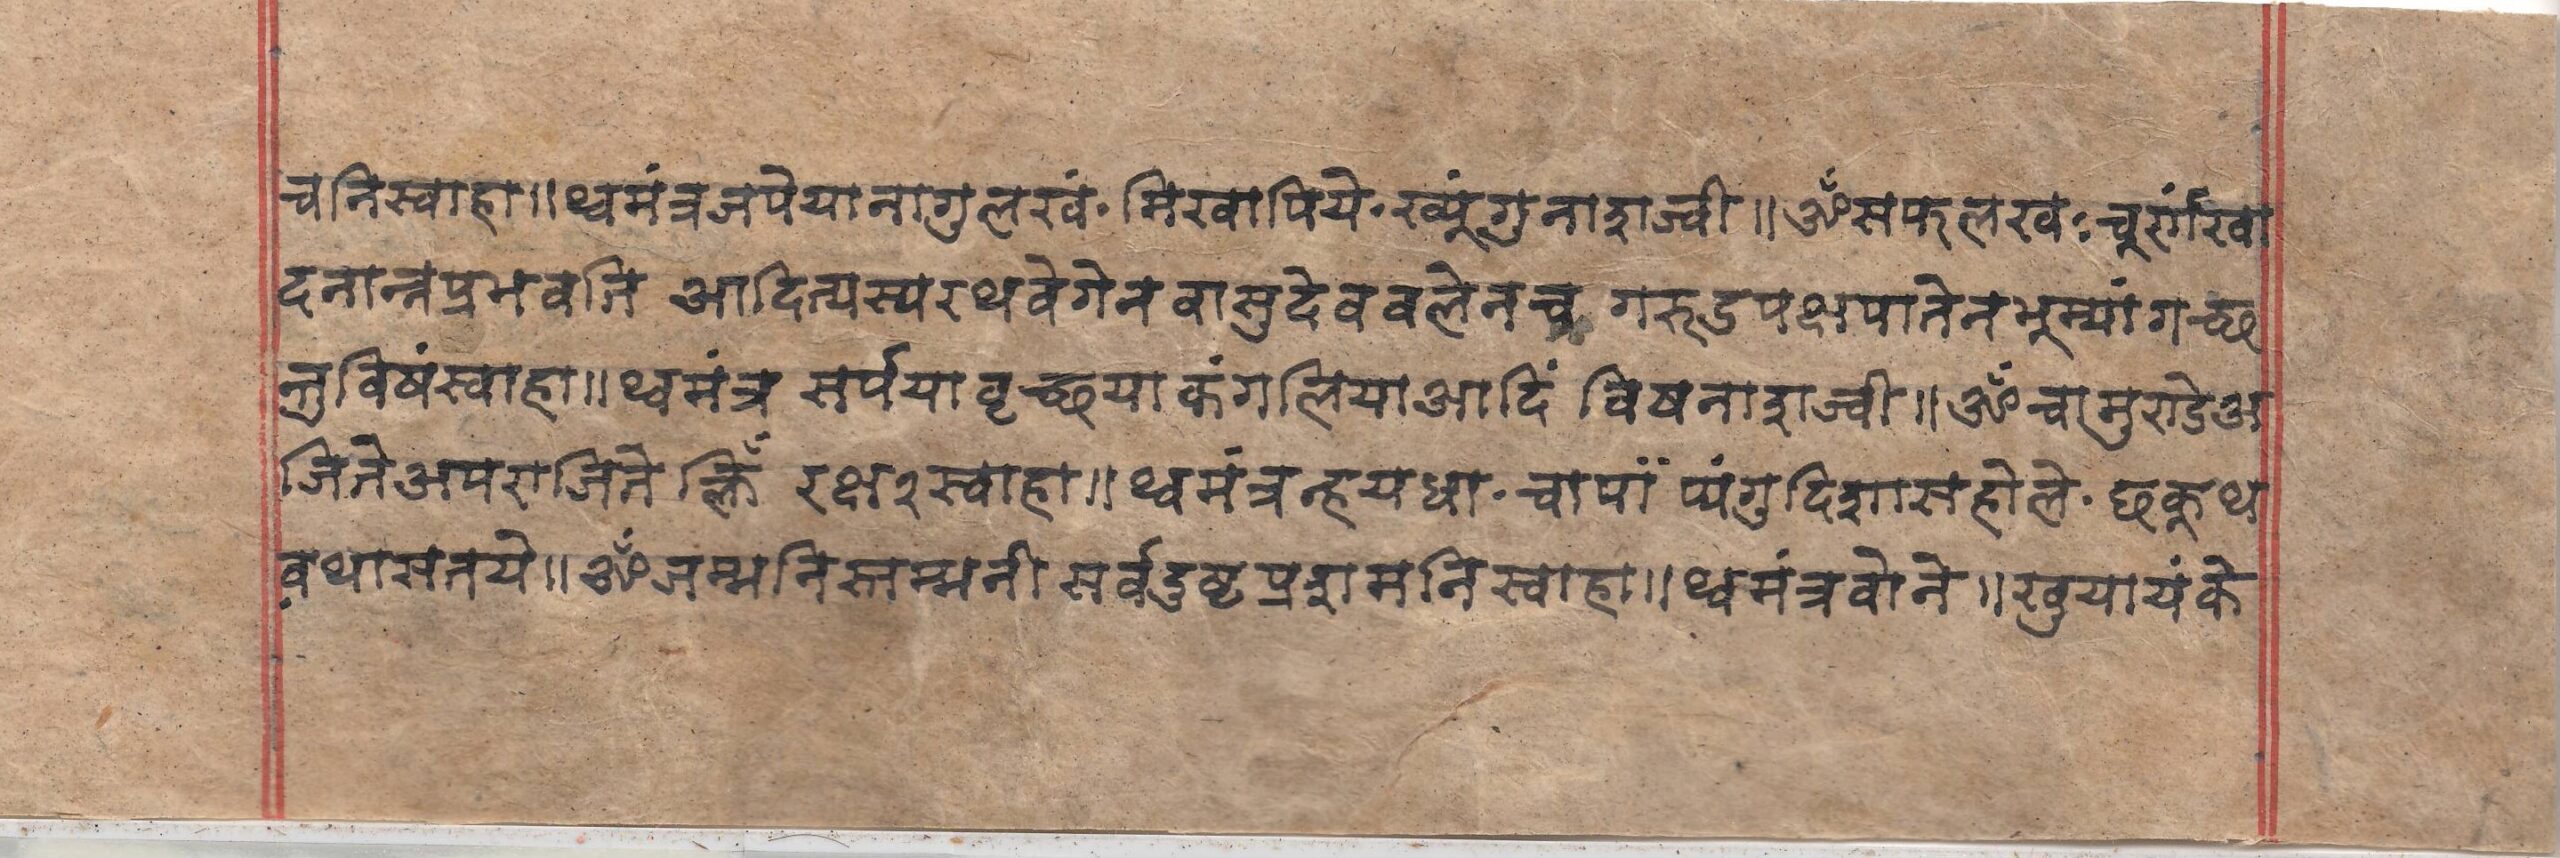 चनिस्वाहा॥थ्वमंत्रजपेयानागुलखं॰मिखापिये॰ख्यूंगुनाशज्वी॥ॐसफलखः॰चूर्गंखा
दनान्नप्रभवति आदित्यस्यरथवेगेनवासुदेवबलेनच गरूडपक्षपातेनभूम्यांगच्छ
तुविषंस्वाहा॥थ्वमंत्र सर्पयावृच्छयाकंगलियाआदिं विषनाशज्वी॥ॐचामुण्डेअ
जितेअपराजिते रक्ष२स्वाहा॥थ्वमंत्रन्हयधा॰चापाँ प्यंगुदिशासहोले॰छकूथ
वथासतये॥ॐजम्भनिस्तम्भनी सर्वदुष्टप्रशमनिस्वाहा॥थ्वमंत्रवोने॥खुयायंके